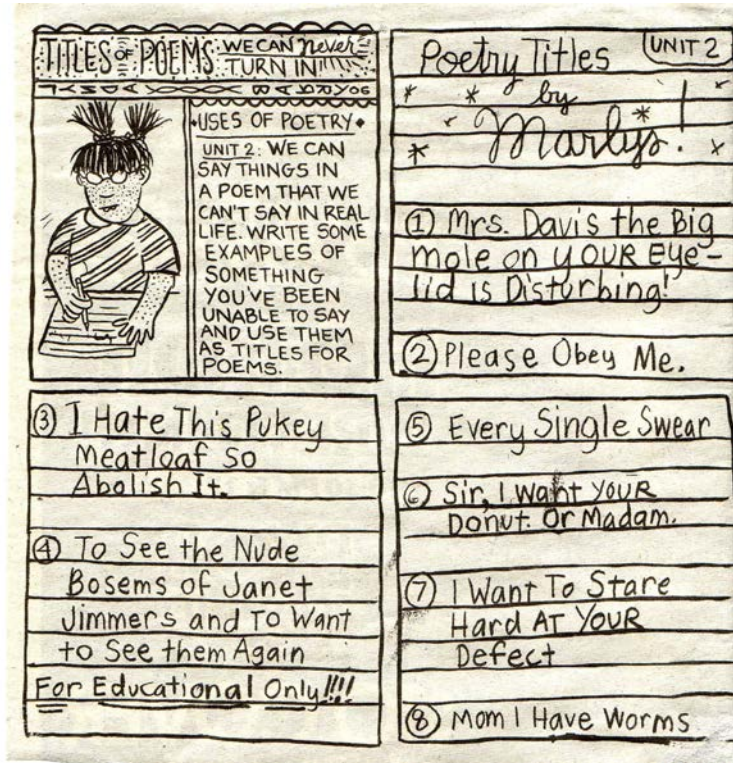 TITLES OF POEMS WE CAN never
TURN IN!!!
LYNDA BARRY
•USES OF POETRY•
UNIT 2: WE CAN
SAY THINGS IN
A POEM THAT WE
CAN'T SAY IN REAL
LIFE. WRITE SOME
EXAMPLES OF
SOMETHING
YOU'VE BEEN
UNABLE TO SAY
AND USE THEM
AS TITLES FOR
POEMS.
Poetry Titles
UNIT 2
by
Marlys!
① Mrs. Davis the Big
mole on YOUR Eye-
lid is Disturbing!
② Please Obey Me.
③ I Hate This Pukey
Meatloaf So
Abolish It.
④ To See the Nude
Bosems of Janet
Jimmers and To Want
to See them Again
For Educational Only!!!!
⑤ Every Single Swear
⑥ Sir, I Want YOUR
Donut. Or Madam.
⑦ I Want To Stare
Hard AT YOUR
Defect
⑧ Mom I Have Worms